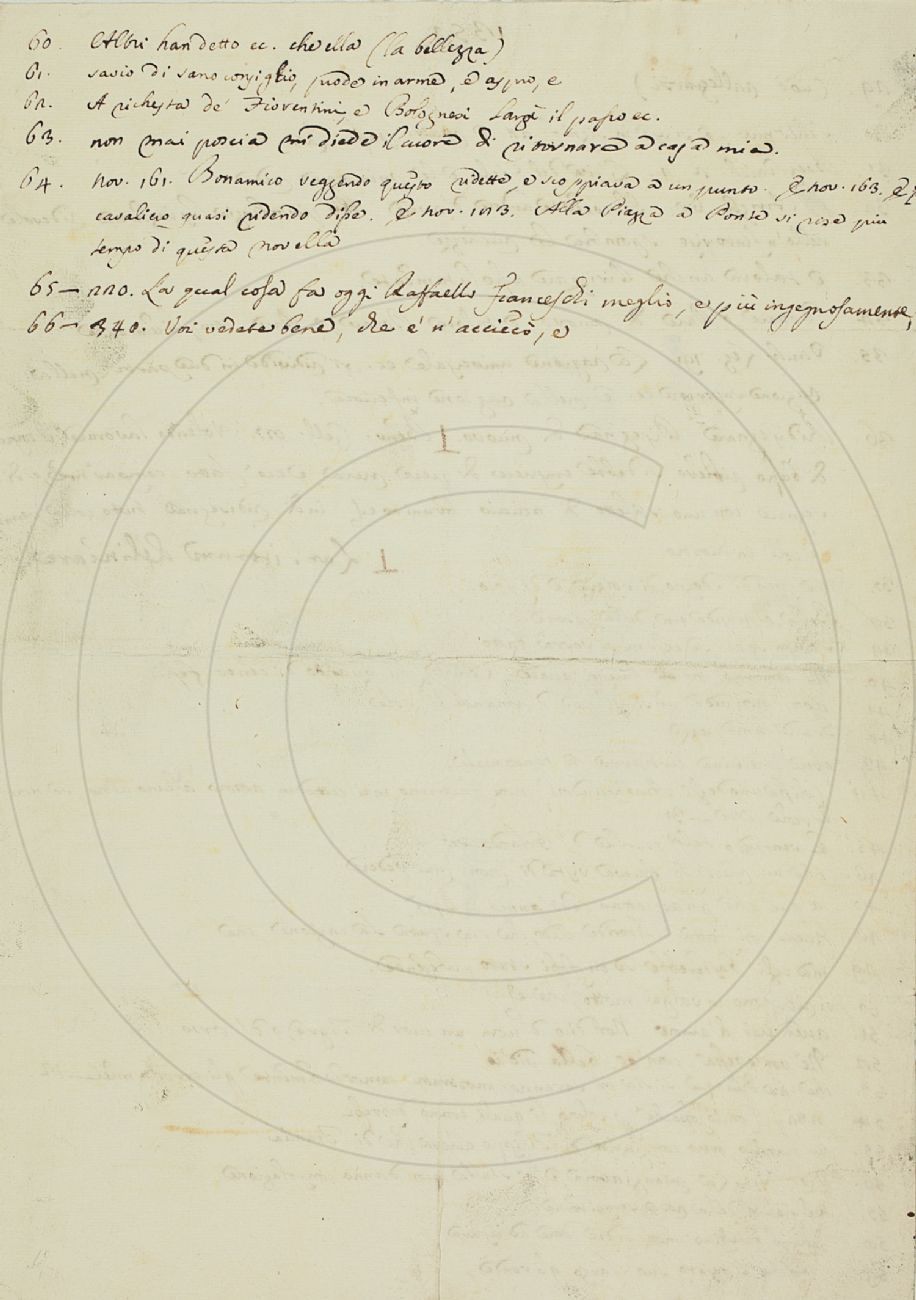 60. Altri han detto ec. che ella (la bellezza)
61. savio di sano consiglio, prode in arme, e aspro, e
62. A richiesta de' Fiorentini, e Bolognesi Largì il passo ec.
63. non mai poscia mi diede il cuore di ritornare a casa mia.
64. nov. 161. Bonamico veggendo questo ridette, e scoppiava a un punto. E nov. 163. E
cavaliero quasi ridendo disse. E nov. 193. Alla Piazza a Ponte si rise più
tempo di questa novella
65 — 220. La qual cosa fa oggi Raffaello Franceschi meglio, e più ingegnosamente,
66 — 340. Voi vedete bene, che e' n'acciecò, e